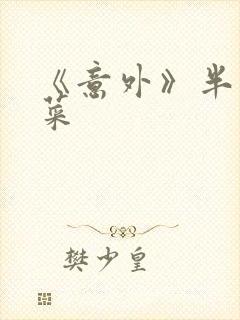 《意外》半
菜
樊少皇